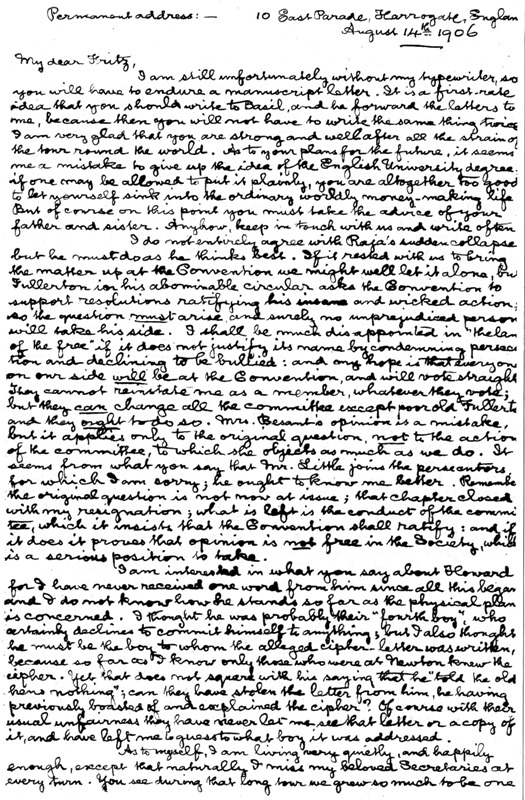 Permanent address:— 10 East Parade, Harrogate, Englan
August 14th 1906
My dear Fritz,
I am still unfortunately without my typewriter, so
you will have to endure a manuscript letter. It is a first-rate
idea that you should write to Basil, and he forward the letters to
me, because then you will not have to write the same thing twice.
I am very glad that you are strong and well after all the strain of
the tour round the world. As to your plans for the future, it seems
me a mistake to give up the idea of the English University degree.
if one may be allowed to put it plainly, you are altogether too good
to let yourself sink into the ordinary worldly money-making life
But of course on this point you must take the advice of your
father and sister. Anyhow, keep in touch with us and write often
I do not entirely agree with Raja's sudden collapse
but he must do as he thinks best. If it rested with us to bring
the matter up at the Convention we might well let it alone, bu
Fullerton in his abominable circular asks the Convention to
support resolutions ratifying his insane and wicked action;
so the question must arise, and surely no unprejudiced person
will take his side. I shall be much disappointed in "the lan
of the free" if it does not justify its name by condemning persecu
tion and declining to be bullied: and my hope is that everyone
on our side will be at the Convention, and will vote straight
They cannot reinstate me as a member, whatever they vote;
but they can change all the committee except poor old Fullerto
and they ought to do so. Mrs. Besant's opinion is a mistake,
but it applies only to the original question, not to the action
of the committee, to which she objects as much as we do. It
seems from what you say that Mr. Little joins the persecutors,
for which I am sorry; he ought to know me better. Remembe
the original question is not now at issue; that chapter closed
with my resignation; what is left is the conduct of the commi
tee, which it insists that the Convention shall ratify: and if
it does it proves that opinion is not free in the Society, which
is a serious position to take.
I am interested in what you say about Howard
for I have never received one word from him since all this began
and I do not know how he stands so far as the physical plan
is concerned. I thought he was probably their "fourth boy", who
certainly declines to commit himself to anything; but I also thought
he must be the boy to whom the alleged cipher letter was written,
because so far as I know only those who were at Newton knew the
cipher. Yet that does not square with his saying that he "told the old
hens nothing"; can they have stolen the letter from him, he having
previously boasted of and explained the cipher? Of course with their
usual unfairness they have never let me see that letter or a copy of
it, and have left me to guess to what boy it was addressed.
As to myself, I am living very quietly, and happily
enough, except that naturally I miss my beloved Secretaries at
every turn. You see during that long tour we grew so much to be one